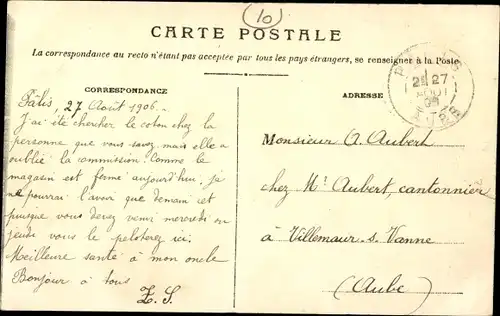 (10)
CARTE POSTALE
La correspondance au recto n'étant pas acceptée par tous les pays étrangers, se renseigner à la Poste
CORRESPONDANCE
Pâlis, 27 Août 1906.
J'ai été chercher le coton chez la
personne que vous savez mais elle a
oublié la commission. Comme le
magasin est fermé aujourd'hui je
ne pourrai l'avoir que demain et
puisque vous devez venir mercredi ou
jeudi vous le peloterez ici.
Meilleure santé à mon oncle
Bonjour à tous
Z. S.
ADRESSE
Monsieur A. Aubert
chez Mr Aubert, cantonnier
à Villemaur s. Vanne
(Aube)
27
AOUT